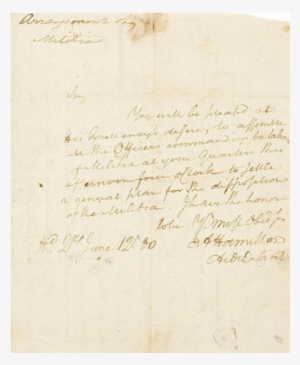 Arrangement of
Militia
Sir,
You will be pleased at
his Excellency's desire, to assemble
all the Officers commanding
of Militia at your Quarters this
afternoon four oClock to settle
a general plan for the disposition
of the Militia. I have the honor
to be Yr. most Obed
Hd Qrs June 12th 80
A Hamilton
Aide De Camp